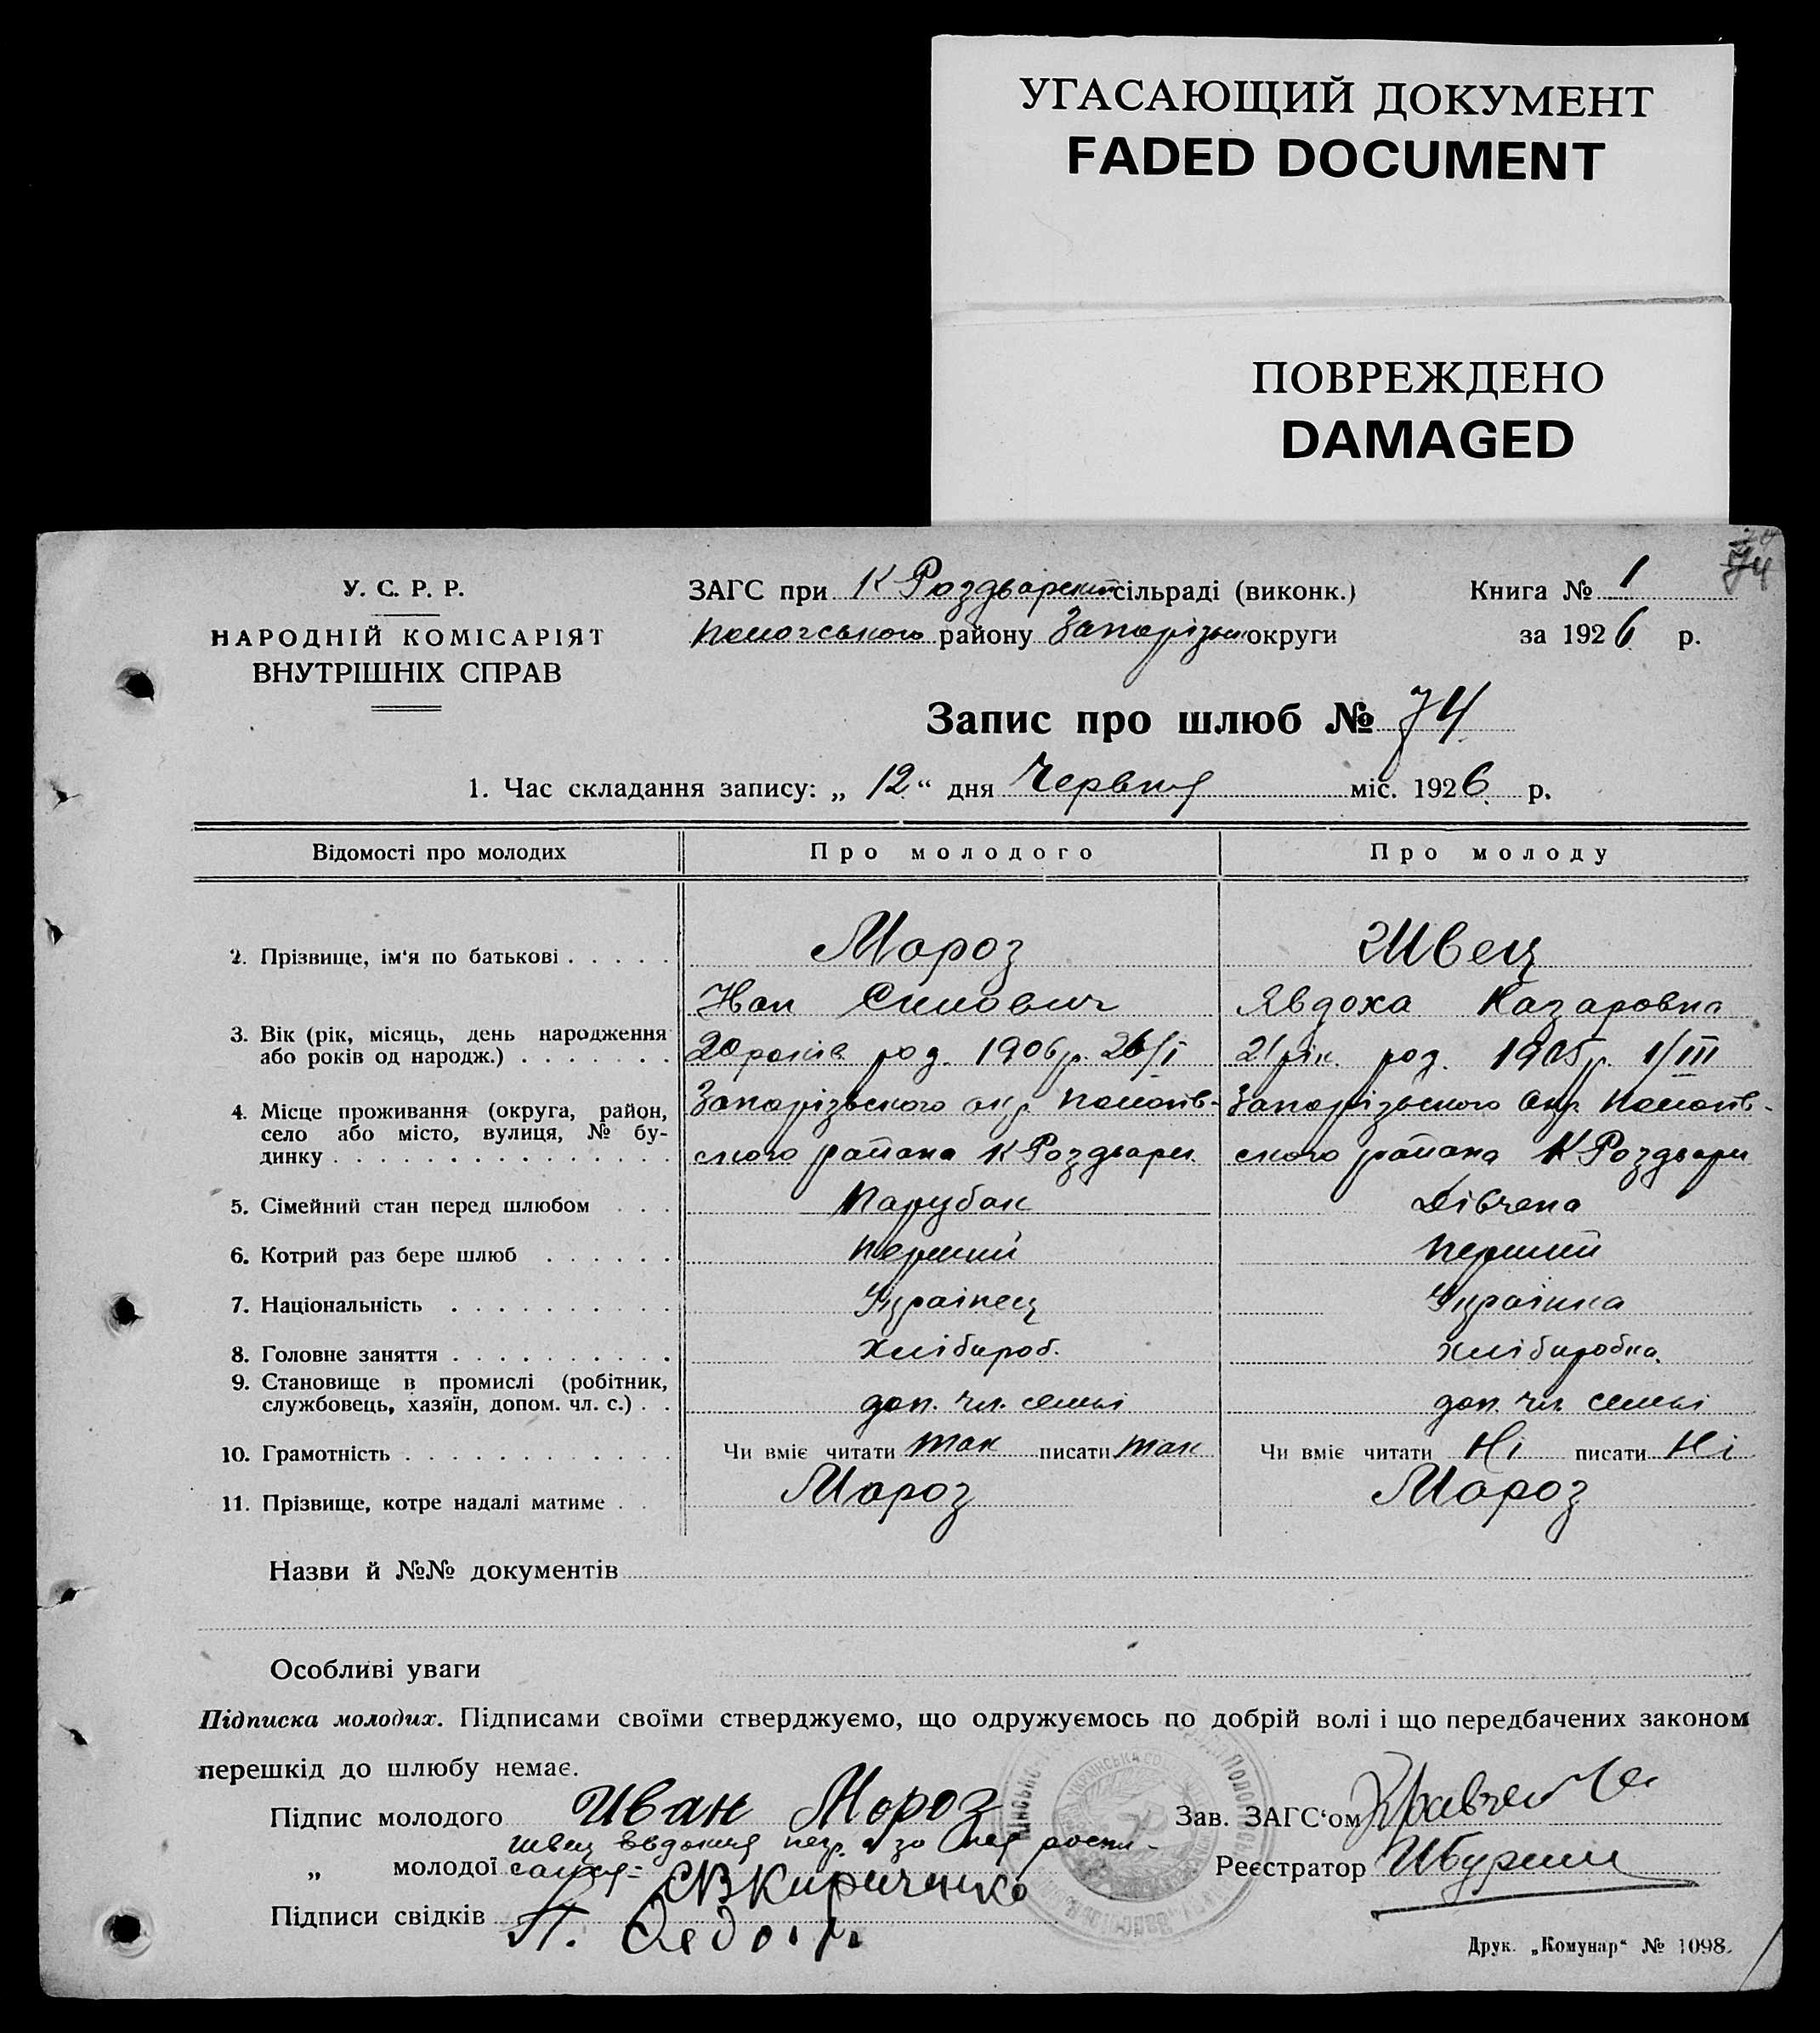 УГАСАЮЩИЙ ДОКУМЕНТ
FADED DOCUMENT
ПОВРЕЖДЕНО
DAMAGED
74
У. С. Р. Р.
НАРОДНІЙ КОМІСАРІЯТ
ВНУТРІШНІХ СПРАВ
ЗАГС при К Роздварськ сільраді (виконк.)
району Запорізьк округи
Книга № 1
за 1926 р.
Запис про шлюб № 74
1. Час складання запису: „ 12 “ дня Червня міс. 1926 р.
Відомості про молодих
Про молодого
Про молоду
2. Прізвище, ім'я по батькові
Мороз
Швец
Иван Силович
Явдоха Назаровна
3. Вік (рік, місяць, день народження
або років од народж.)
20 років род. 1906 р. 26/I
21 рік род. 1905 р. 1/III
4. Місце проживання (округа, район,
село або місто, вулиця, № бу-
динку
Запорізьского окр. Пологів-
ского района К Роздвари
Запорізьского Окр. Пологів-
ского района К Роздвари
5. Сімейний стан перед шлюбом
Парубок
Дівчена
6. Котрий раз бере шлюб
перший
перший
7. Національність
Українец
Українка
8. Головне заняття
Хлібироб.
хлібиробка.
9. Становище в промислі (робітник,
службовець, хазяїн, допом. чл. с.)
доп. чл. семьі
доп. чл. семьі
10. Грамотність
Чи вміє читати так писати так
Чи вміє читати Ні писати Ні
11. Прізвище, котре надалі матиме
Мороз
Мороз
Назви й №№ документів
Особливі уваги
Підписка молодих. Підписами своїми стверджуємо, що одружуємось по добрій волі і що передбачених законом
перешкід до шлюбу немає.
Підпис молодого Иван Мороз
Зав. ЗАГС'ом
Швец негр. а за нея роспи-
„ молодої
Реєстратор
Кириченко
Підписи свідків
Друк. „Комунар“ № 1098.